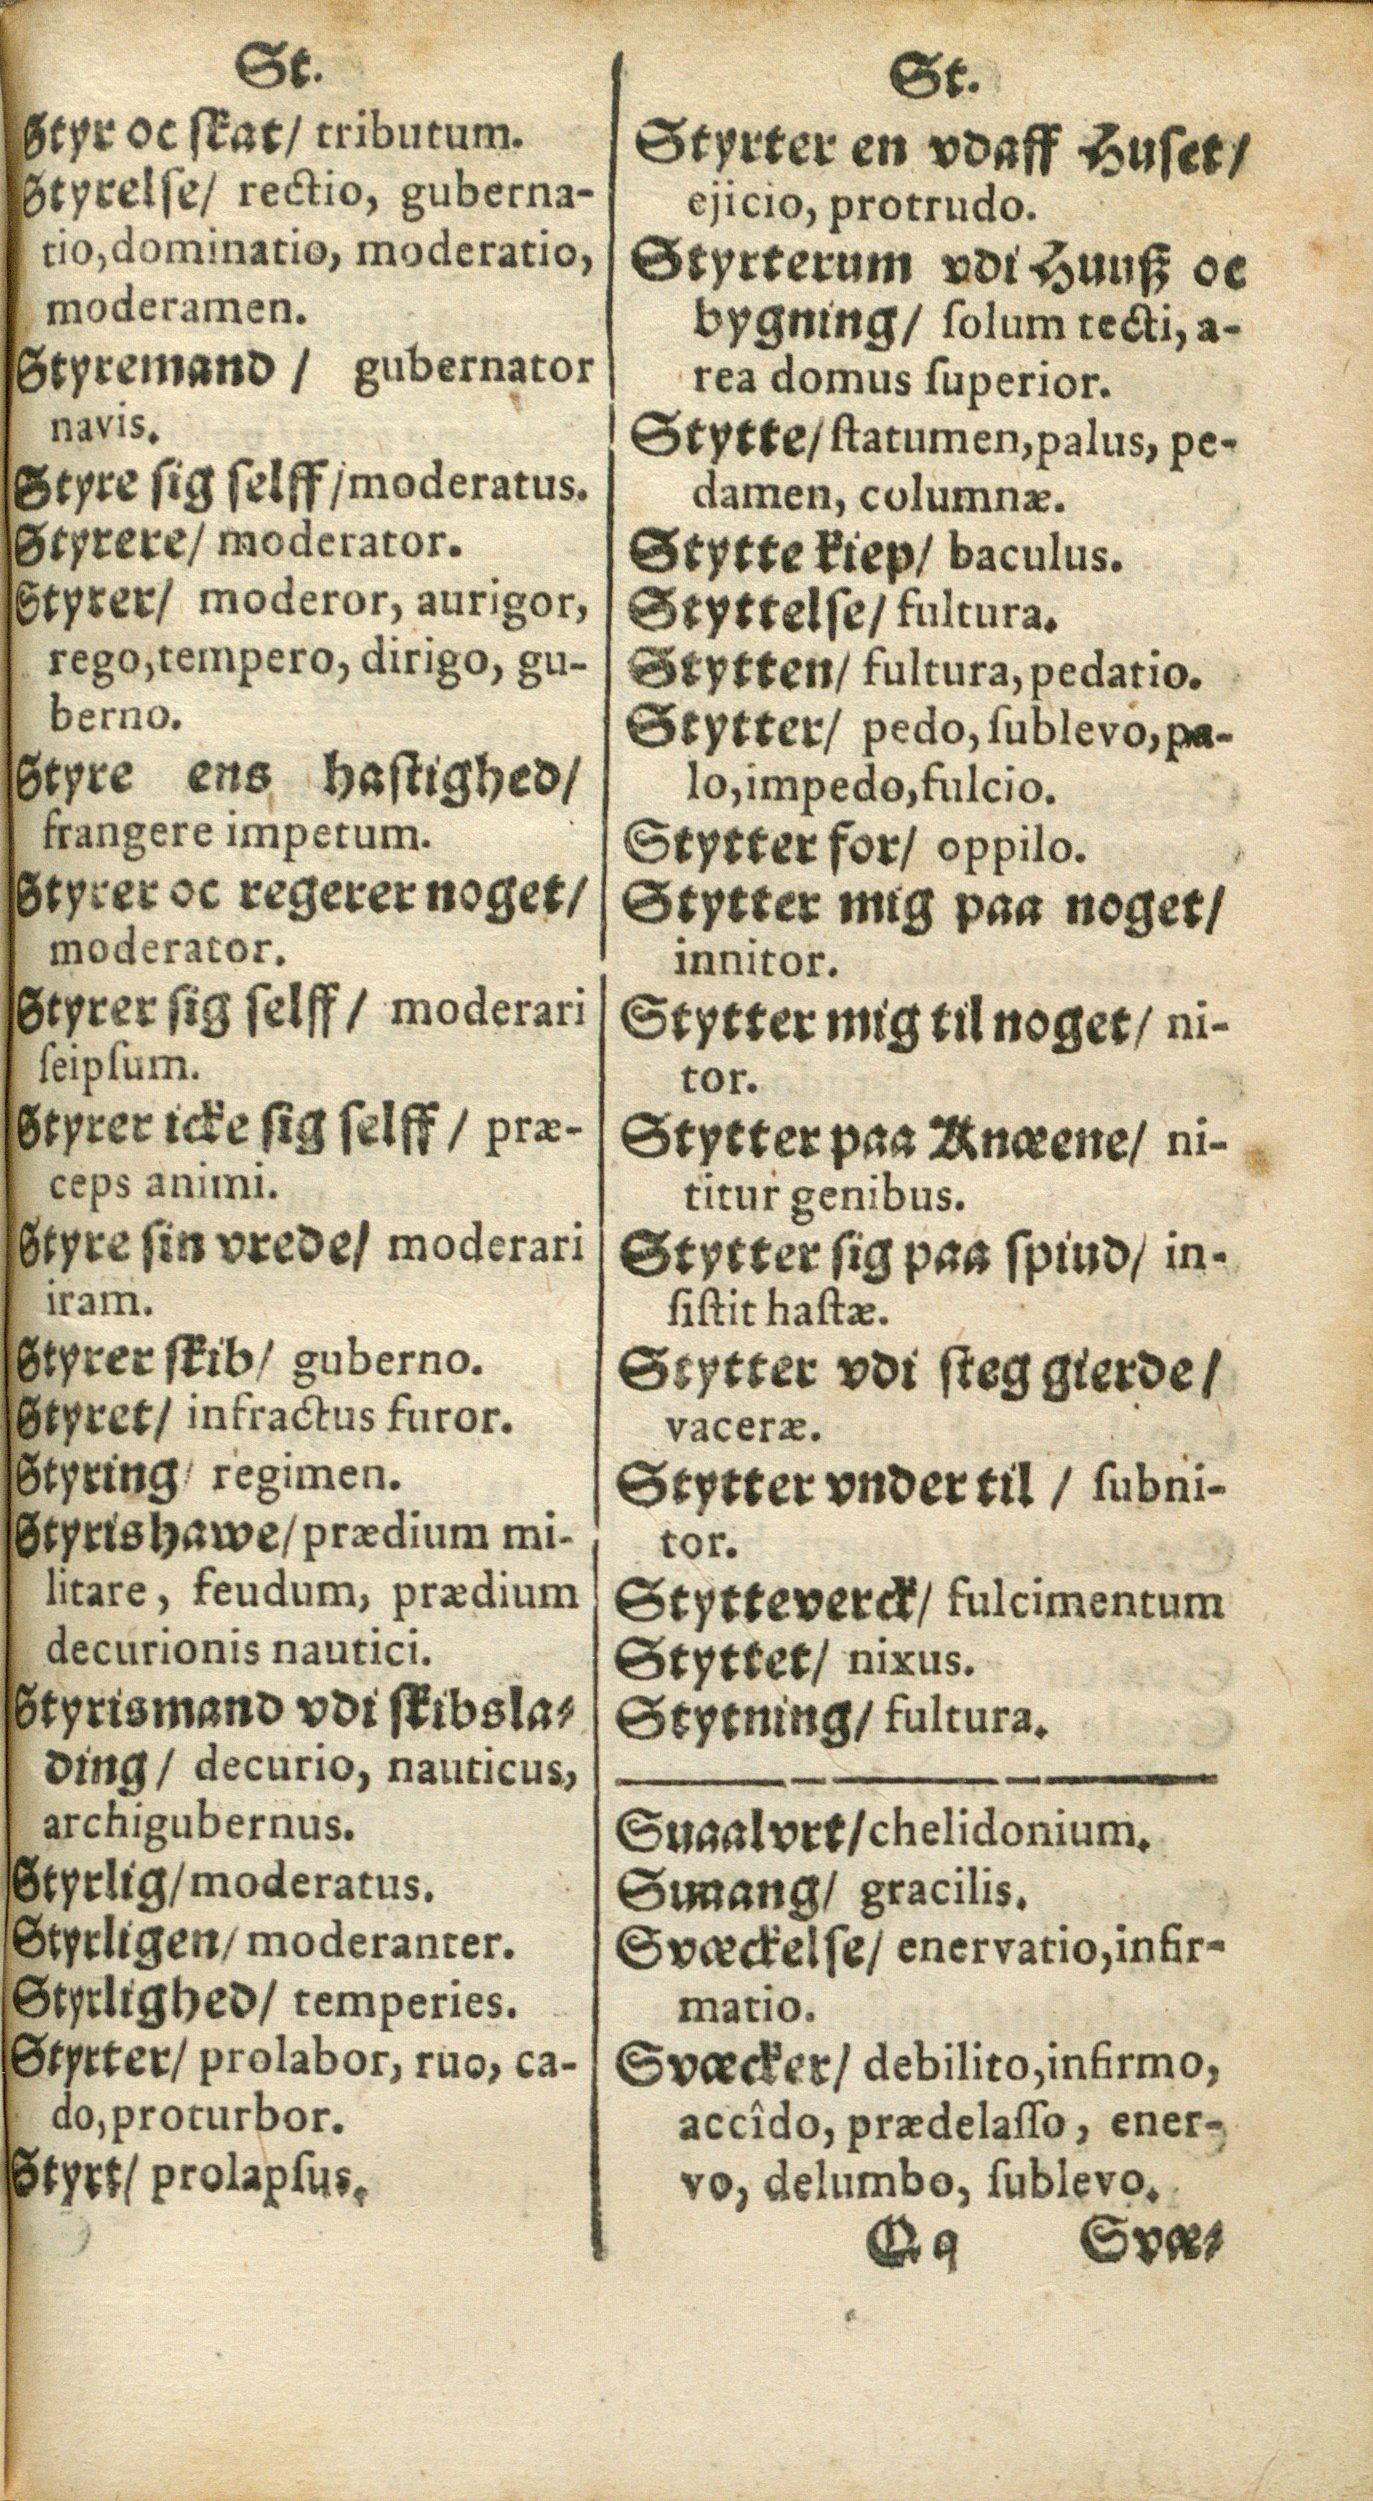 St.
Styr oc ſkat/ tributum.
Styrelſe/ rectio, guberna-
tio, dominatio, moderatio,
moderamen.
Styremand / gubernator
navis.
Styre ſig ſelff /moderatus.
Styrere/ moderator.
Styrer/ moderor, aurigor,
rego, tempero, dirigo, gu-
berno.
Styre ens haſtighed/
frangere impetum.
Styrer oc regerer noget/
moderator.
Styrer ſig ſelff / moderari
ſeipſum.
Styrer icke ſig ſelff / præ-
ceps animi.
Styre ſin vrede/ moderari
iram.
Styrer ſkib/ guberno.
Styret/ infractus furor.
Styring/ regimen.
Styrishawe/ prædium mi-
litare, feudum, prædium
decurionis nautici.
Styrismand vdi ſkibsla-
ding / decurio, nauticus,
archigubernus.
Styrlig/moderatus.
Styrligen/ moderanter.
Styrlighed/ temperies.
Styrter/ prolabor, ruo, ca-
do, proturbor.
Styrt/ prolapſus.
St.
Styrter en vdaff Huſet/
ejicio, protrudo.
Styrterum vdi Huuß oc
bygning/ ſolum tecti, a-
rea domus ſuperior.
Stytte/ ſtatumen, palus, pe-
damen, columnæ.
Stytte kiep/ baculus.
Styttelſe/ fultura.
Stytten/ fultura, pedatio.
Stytter/ pedo, ſublevo, pa-
lo, impedo, fulcio.
Stytter for/ oppilo.
Stytter mig paa noget/
innitor.
Stytter mig til noget/ ni-
tor.
Stytter paa Knæene/ ni-
titur genibus.
Stytter ſig paa ſpiud/ in-
ſiſtit haſtæ.
Stytter vdi ſteg gierde/
vaceræ.
Stytter vnder til / ſubni-
tor.
Stytteverck/ fulcimentum
Styttet/ nixus.
Stytning/ fultura.
Suaalvrt/chelidonium.
Suaang/ gracilis.
Svæckelſe/ enervatio, infir-
matio.
Svæcker/ debilito, infirmo,
accîdo, prædelaſſo, ener-
vo, delumbo, ſublevo.
Qq Svæ-